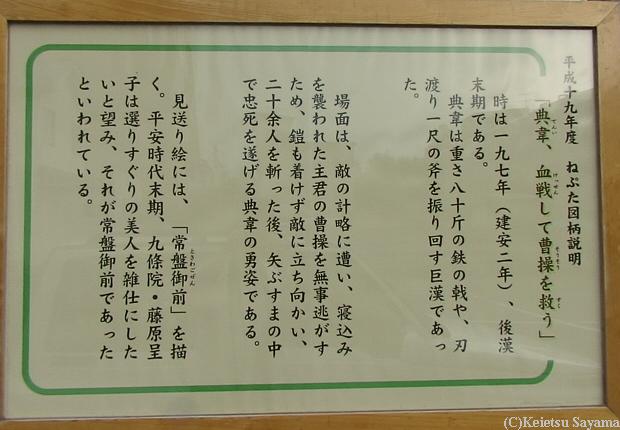 平成十九年度　ねぷた図柄説明
「典韋、血戦して曹操を救う」
てんい　けっせん　そうそう　すく
時は一九七年（建安二年）、後漢
末期である。
典韋は重さ八十斤の鉄の戟や、刃
渡り一尺の斧を振り回す巨漢であっ
た。
場面は、敵の計略に遭い、寝込み
を襲われた主君の曹操を無事逃がす
ため、鎧も着けず敵に立ち向かい、
二十余人を斬った後、矢ぶすまの中
で忠死を遂げる典韋の勇姿である。
見送り絵には、「常盤御前」を描
ときわごぜん
く。平安時代末期、九條院・藤原呈
子は選りすぐりの美人を雑仕にした
いと望み、それが常盤御前であった
といわれている。
(C)Keietsu Sayama